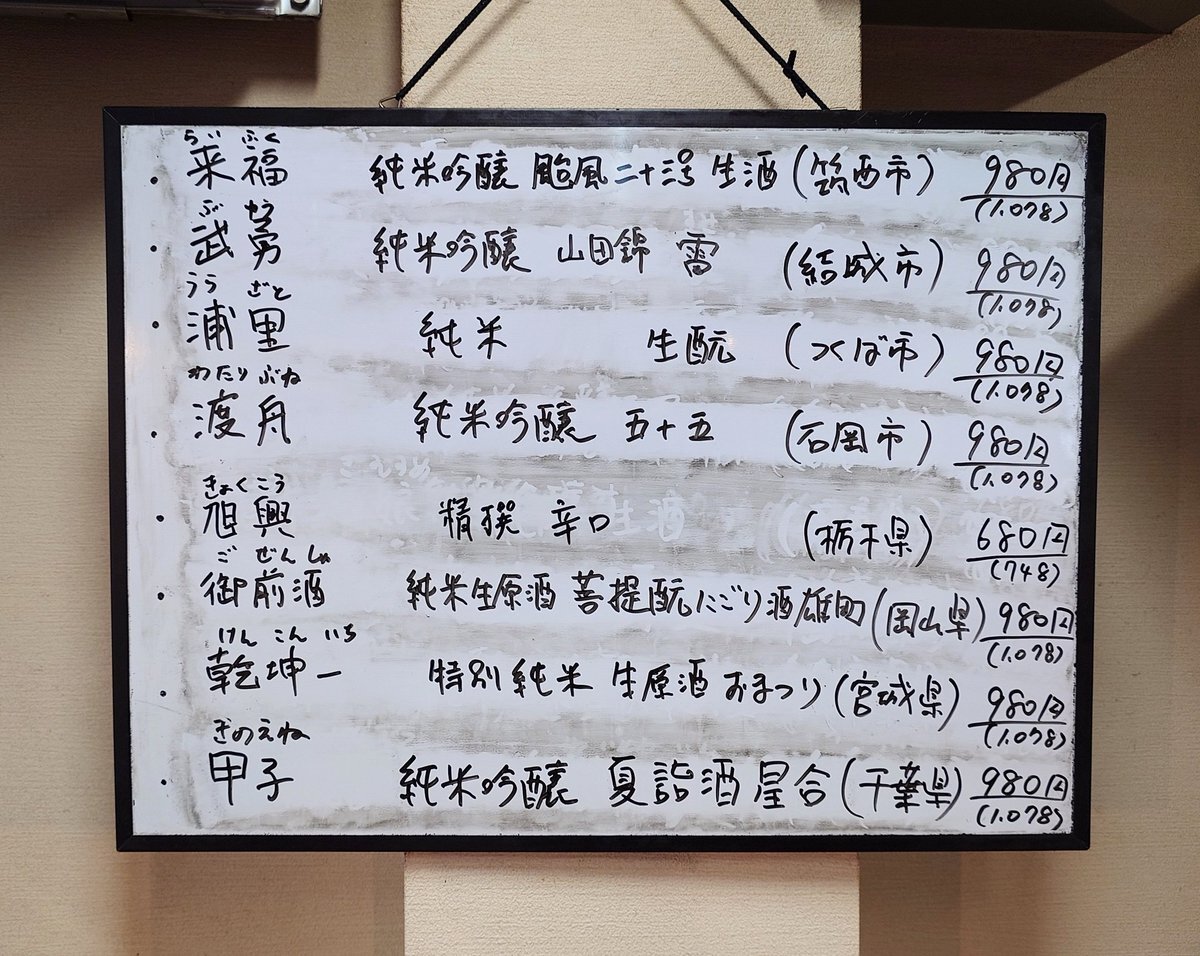 らいふく
・来福 純米吟醸 颱風二十三号 生酒(筑西市) 980円
(1.078)
ぶゆう
・武勇 純米吟醸 山田錦 雷 (結城市) 980円
(1.078)
うらざと
・浦里 純米 生酛 (つくば市) 980円
(1.078)
わたりぶね
・渡舟 純米吟醸 五十五 (石岡市) 980円
(1.078)
きょくこう
・旭興 精撰 辛口 (栃木県) 680円
(748)
ごぜんしゅ
・御前酒 純米生原酒 菩提酛にごり酒雄町(岡山県) 980円
(1.078)
けんこんいち
・乾坤一 特別純米 生原酒 おまつり(宮城県) 980円
(1.078)
きのえね
・甲子 純米吟醸 夏詣酒 星合(千葉県) 980円
(1.078)